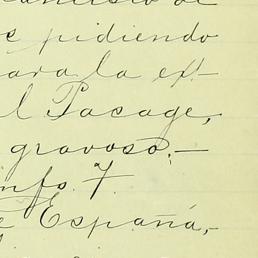 pidiendo
para la ex-
l Pasage,
gravoso.—
info. 7.
e España,-